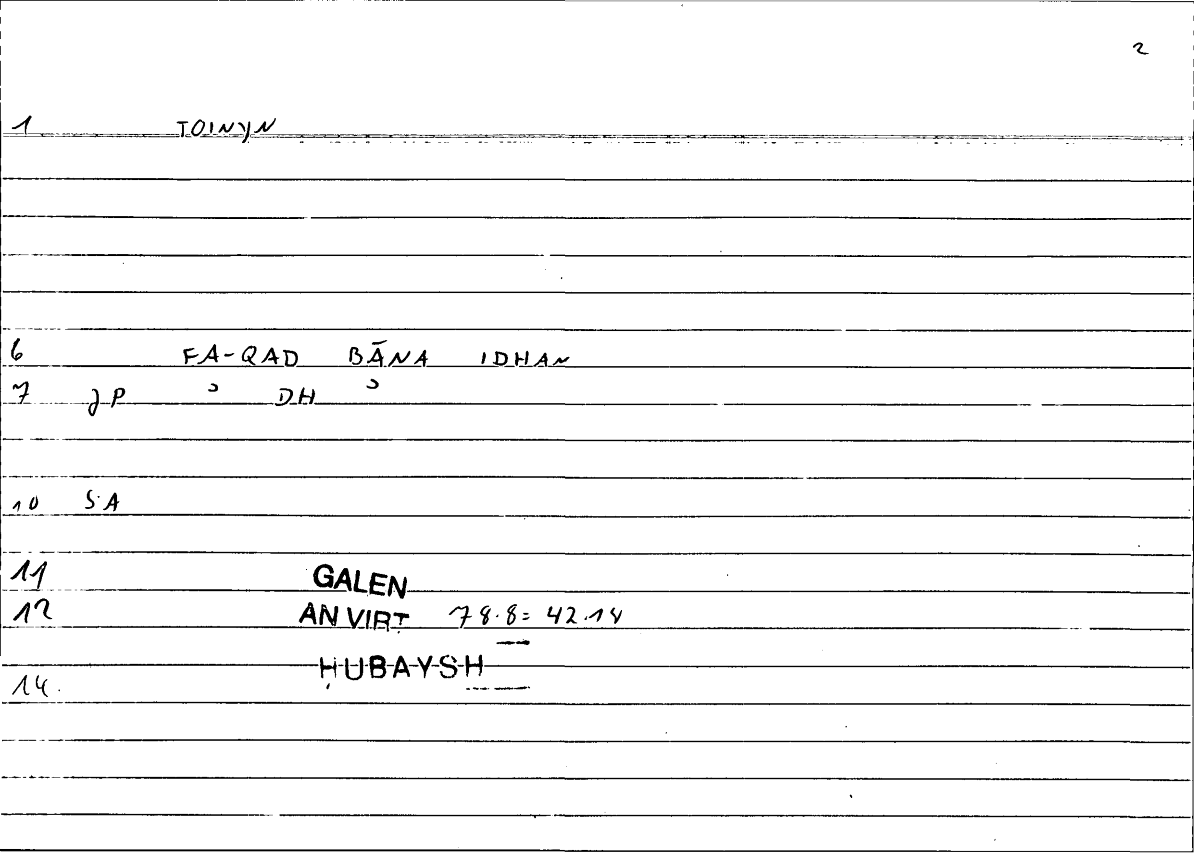 2
1 TOINYN
6 FA-QAD BĀNA IDHAN
7 JP ɔ DH ɔ
10 SA
11 GALEN
12 AN VIRṬ 78.8= 42.14
ḤUBAYSH
14.